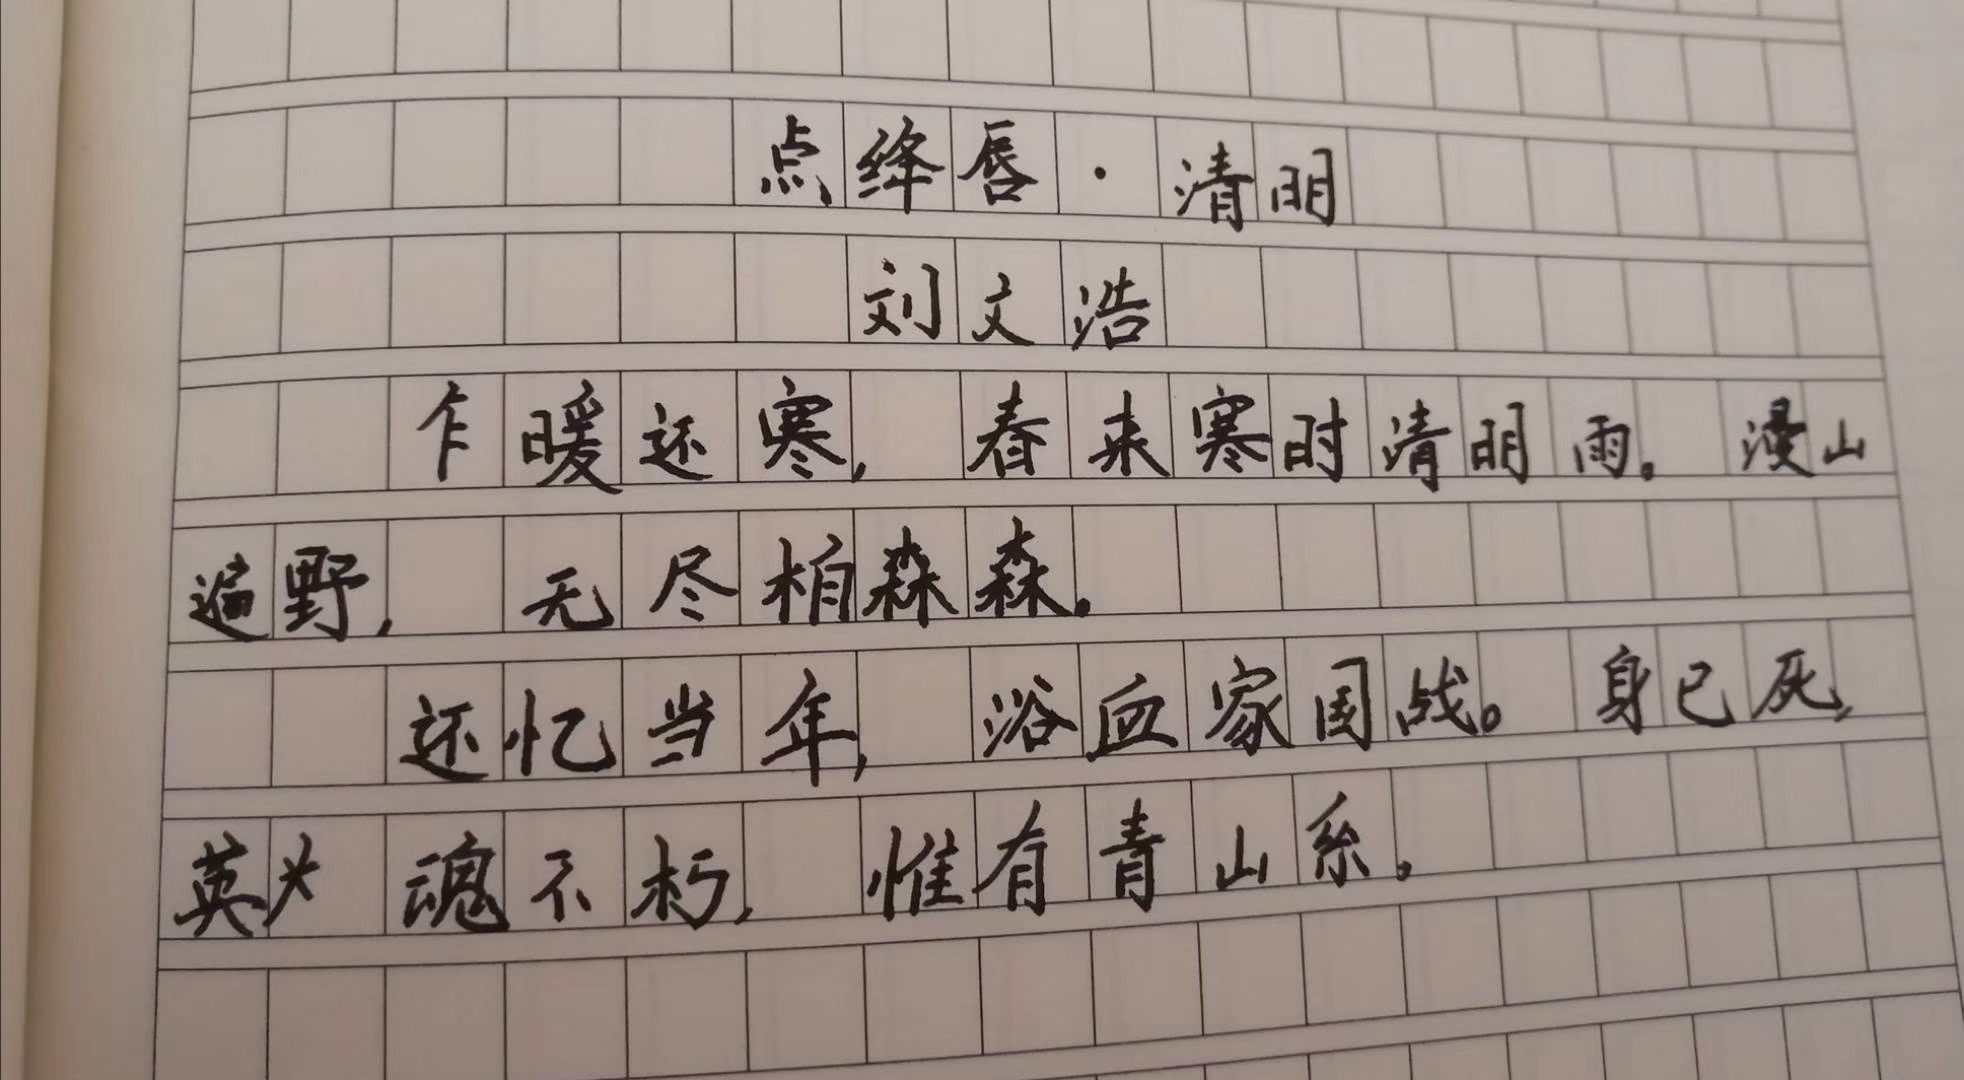 点绛唇·清明
刘文浩
乍暖还寒，春来寒时清明雨。漫山
遍野，无尽柏森森。
还忆当年，浴血家国战。身已死，
英 魂不朽，惟有青山系。